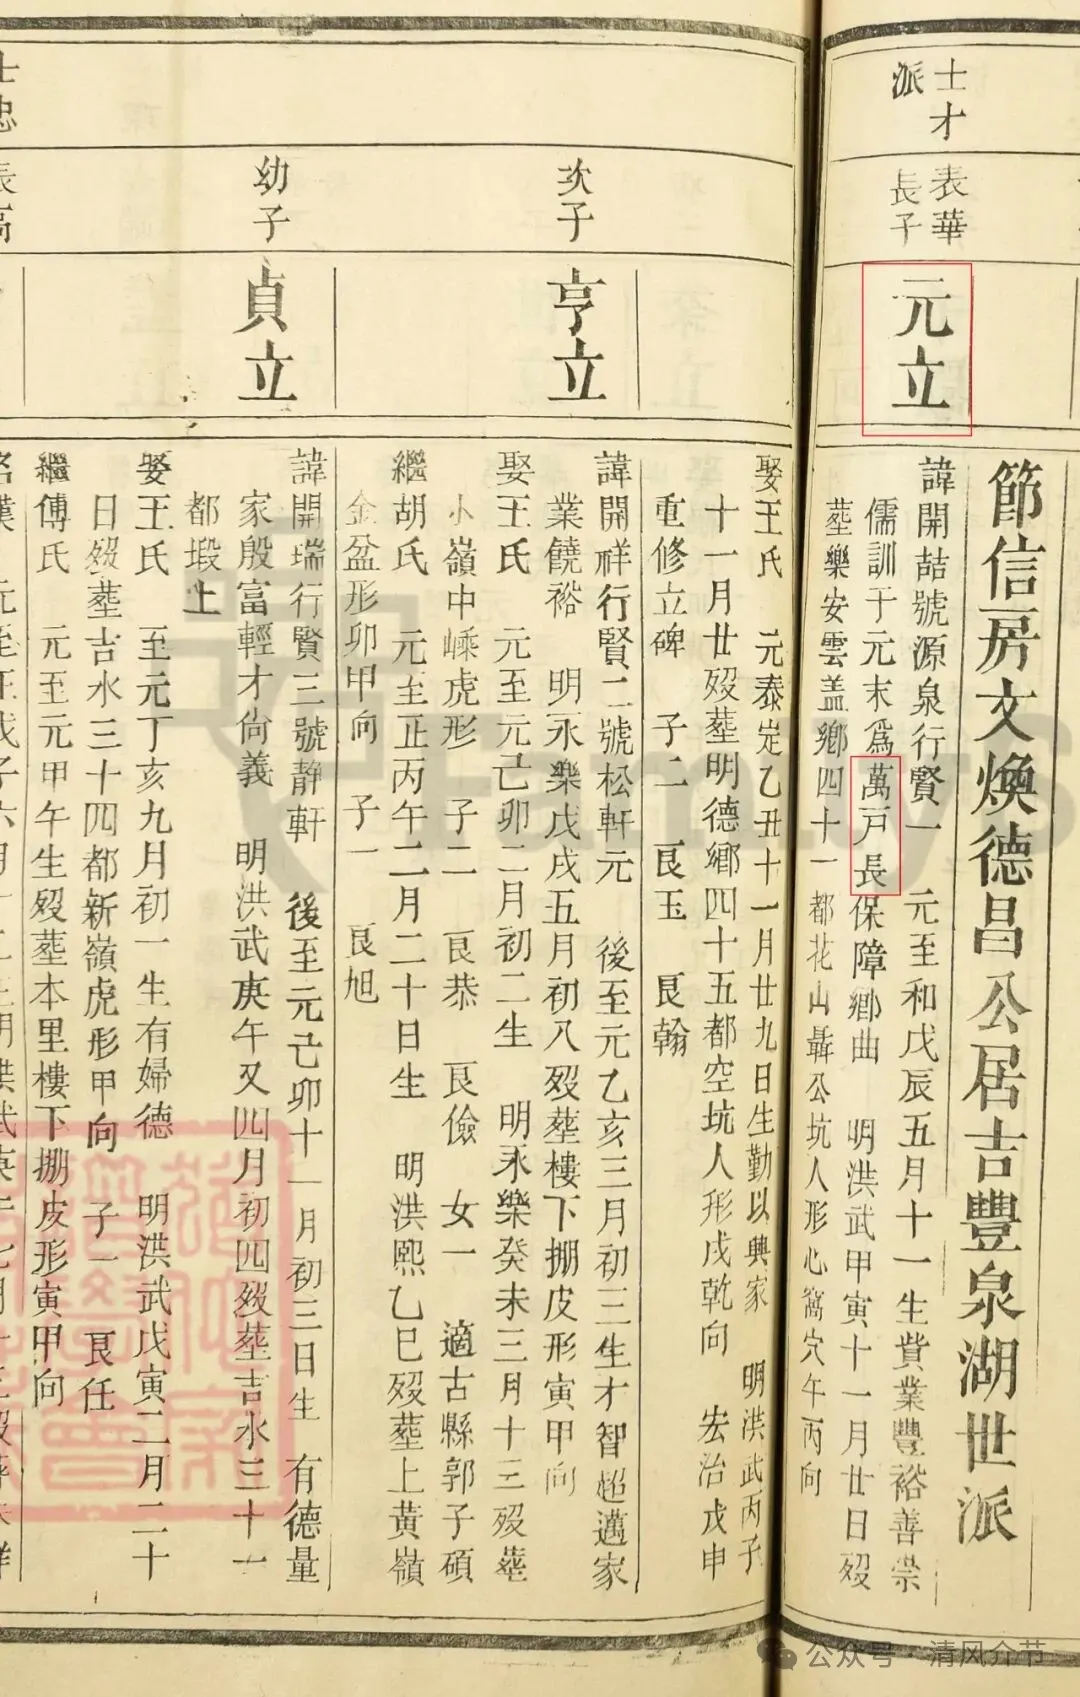 節信房文煥德昌公居吉豐泉湖世派
士才
派
表華
長子
元立
諱開喆號源泉行賢一 元至和戊辰五月十一生貲業豐裕善崇
儒訓于元末爲萬戸長保障鄉曲 明洪武甲寅十一月廿日殁
塟樂安雲盖鄉四十一都花山聶公坑人形心窩穴午丙向
娶王氏 元泰定乙丑十一月廿九日生勤以興家 明洪武丙子
十一月廿殁塟明德鄉四十五都空坑人形戌乾向 宏治戊申
重修立碑 子二 艮玉 艮翰
次子
亨立
諱開祥行賢二號松軒元 後至元乙亥三月初三生才智超邁家
業饒裕 明永樂戊戌五月初八殁塟樓下掤皮形寅甲向
娶王氏 元至元己卯二月初二生 明永樂癸未三月十三殁塟
小嶺中嵊虎形 子二 艮恭 艮儉 女一 適古縣郭子碩
繼胡氏 元至正丙午二月二十日生 明洪熙乙巳殁塟上黃嶺
金盆形卯甲向 子一 艮旭
幼子
貞立
諱開瑞行賢三號静軒 後至元己卯十一月初三日生 有德量
家殷富輕才尙義 明洪武庚午又四月初四殁塟吉水三十一
都塅上
娶王氏 至元丁亥九月初一生有婦德 明洪武戊寅二月二十
日殁塟吉水三十四都新嶺虎形甲向 子一 艮任
繼傅氏 元至元甲午生殁塟本里樓下掤皮形寅甲向
士忠
表高
公众号·清风介节